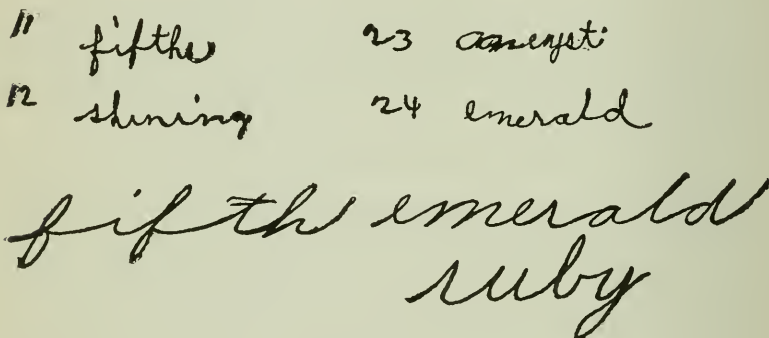 11 fifths 23 amenyst
12 shining 24 emerald
fifth emerald
ruby